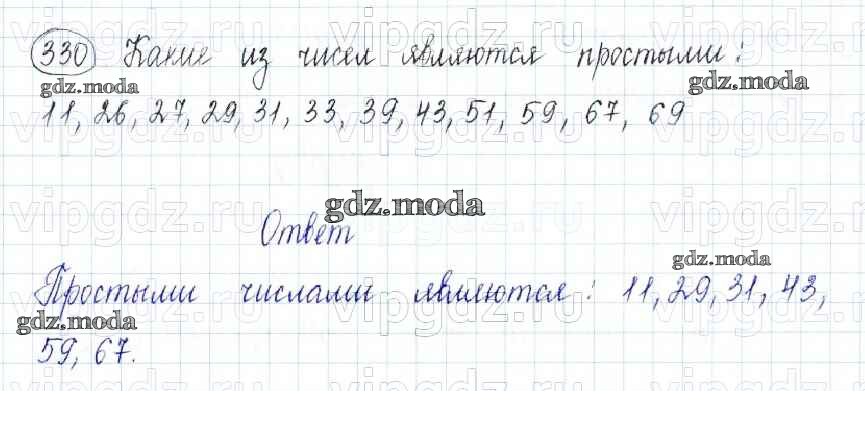 330 Какие из чисел являются простыми:
gdz.moda
gdz.moda
11, 26, 27, 29, 31, 33, 39, 43, 51, 59, 67, 69
gdz.moda
Ответ
gdz.moda
Простыми числами являются: 11, 29, 31, 43,
gdz.moda
59, 67.
vipgdz.ru